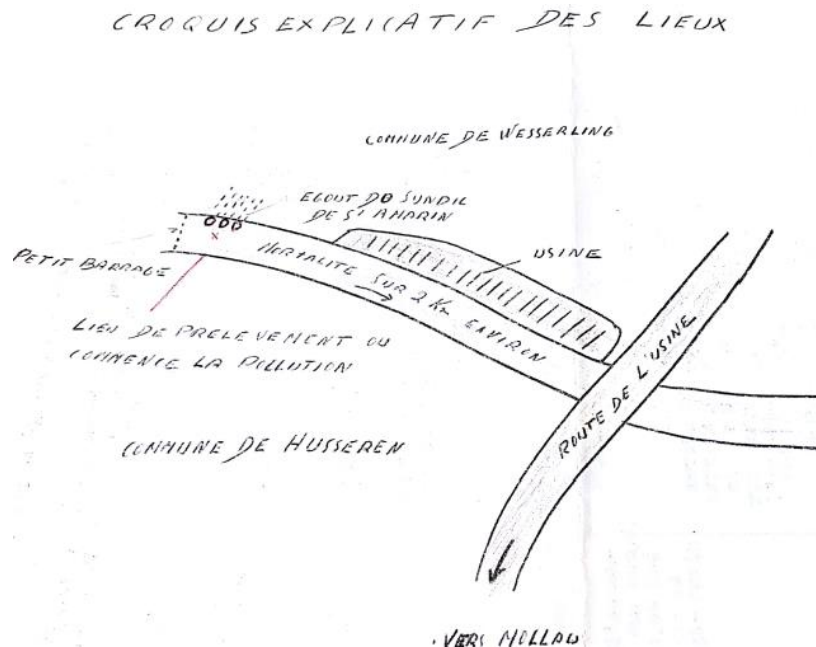 CROQUIS EXPLICATIF DES LIEUX
COMMUNE DE WESSERLING
EGOUT DO SUNDIL
DE St AMARIN
USINE
PETIT BARRAGE
MORTALITE SUR 2 Km ENVIRON
LIEU DE PRELEVEMENT OU
COMMENCE LA POLLUTION
ROUTE DE L'USINE
COMMUNE DE HUSSEREN
VERS MOLLAU